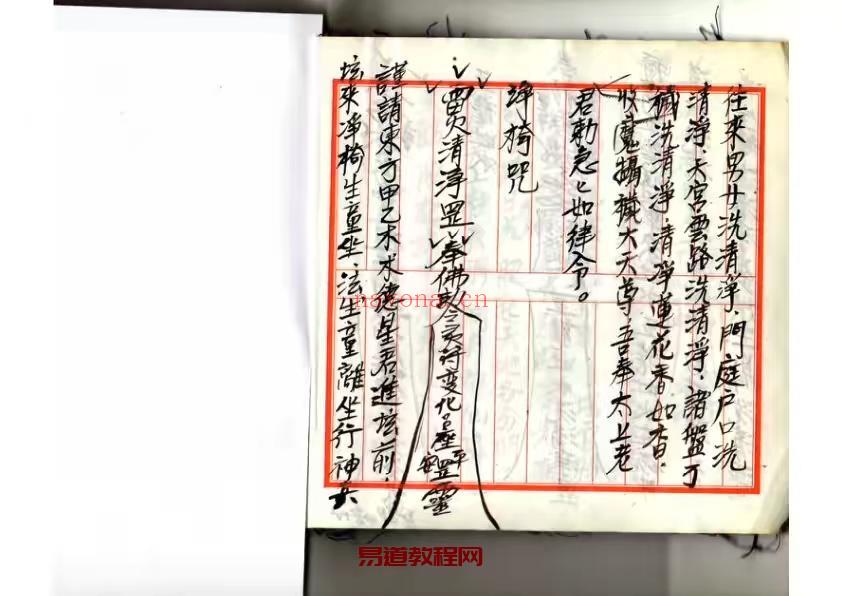 往來男女洗清淨、門庭户口洗
清淨、天宮雲路洗清淨、諸盤丁
穢洗清淨、清淨蓮花香如香、
收魔攝穢大天尊吾奉太上老
君勅急々如律令。
淨椅咒
清淨罡 奉佛 令 符变化 罡靈
謹請東方甲乙木木德星君進坛前、
坛來净椅生童坐、法生童離坐行神兵
nayona.cn
易道教程网